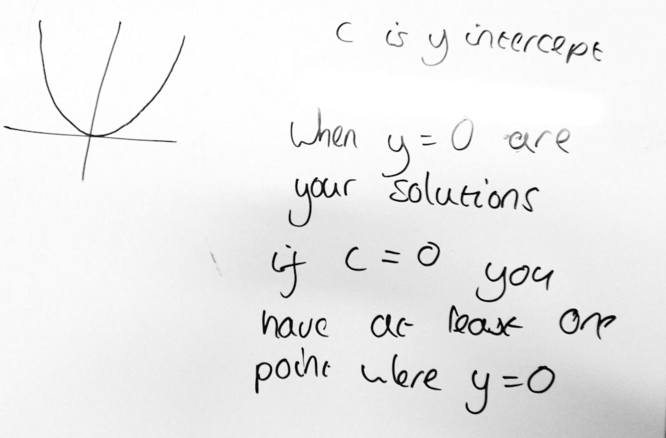 c is y intercept
When y = 0 are
your solutions
if c = 0 you
have at least one
point where y = 0